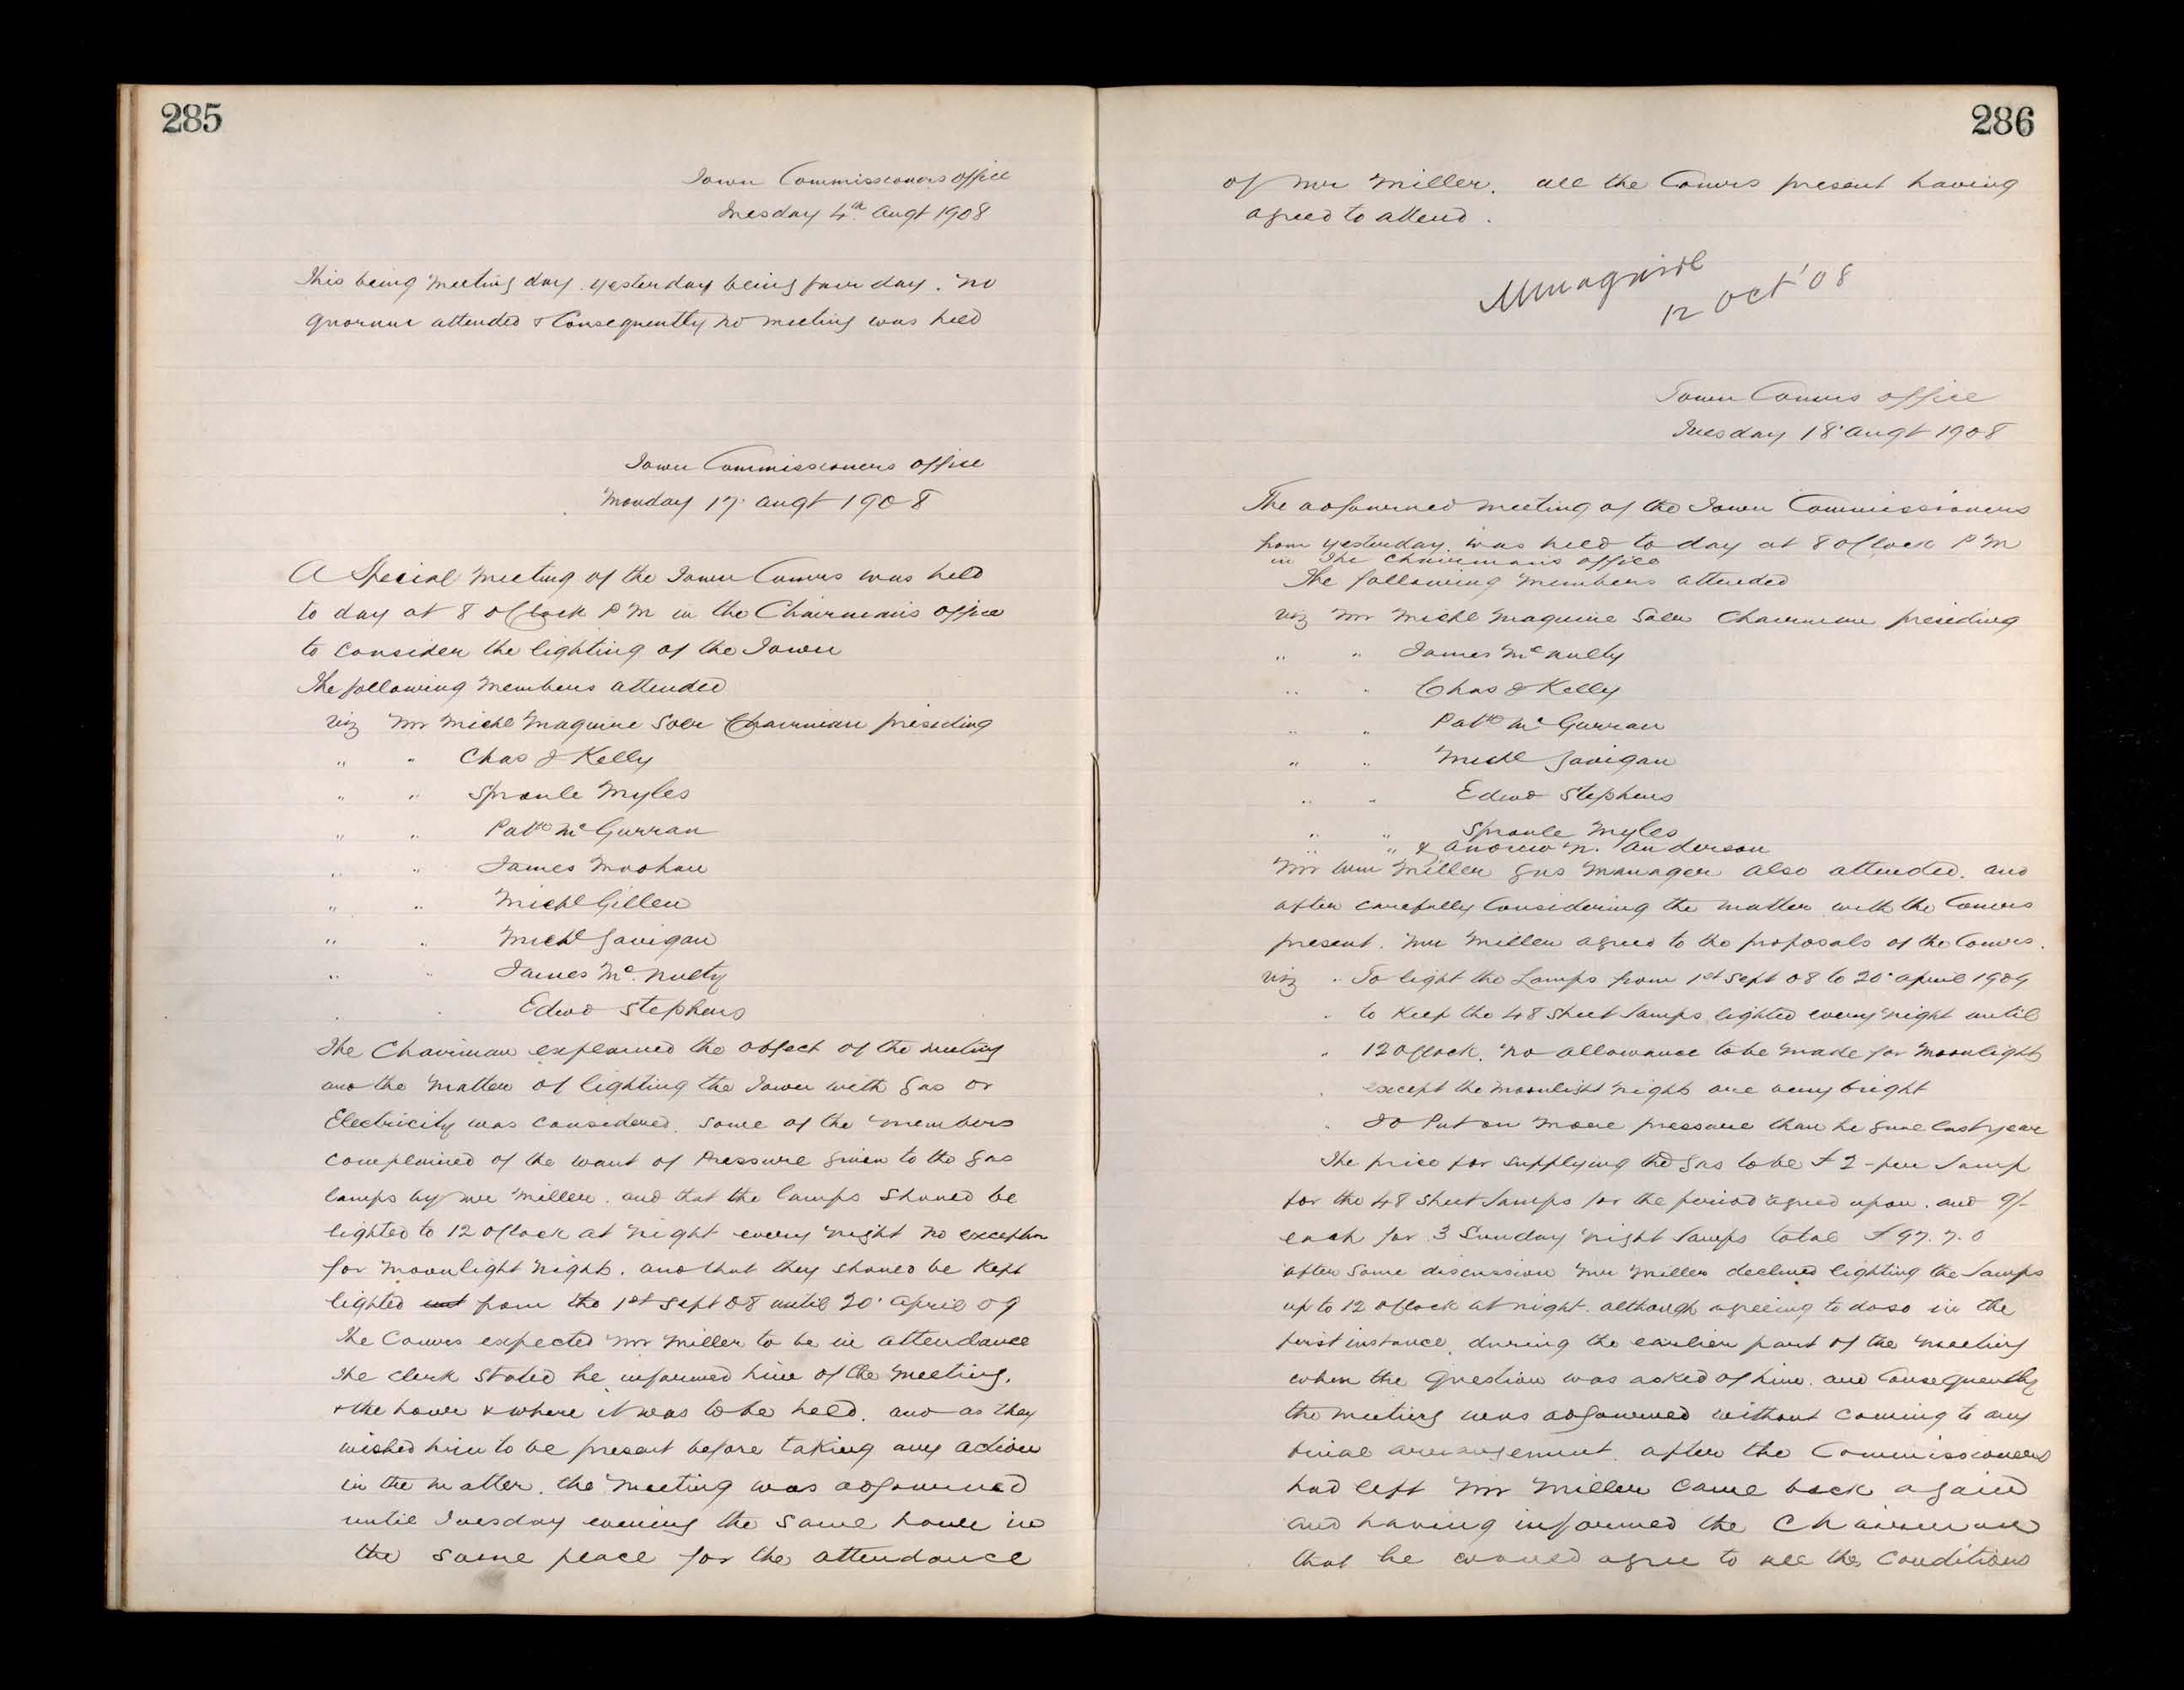 285
Town Commissioners office
Tuesday 4th Augt 1908
This being meeting day. yesterday being fair day. no
quorum attended & Consequently no meeting was held
Town Commissioners office
Monday 17. Augt 1908
A Special meeting of the Town Comrs was held
to day at 8 oClock P M in the Chairmans office
to consider the lighting of the Town
The following members attended
viz Mr Michl Maguire Solr Chairman presiding
" " Chas J Kelly
" " Sproule Myles
" " Patk Mc Gurran
" " James Moohan
" " Michl Gillen
" " Michl Gavigan
" " James Mc Nulty
" " Edwd Stephens
The Chairman explained the object of the meeting
and the matter of lighting the Town with gas or
Electricity was considered. some of the members
complained of the want of Pressure given to the gas
lamps by Mr Miller. and that the lamps should be
lighted to 12 oClock at night every night no exception
for moonlight nights. and that they should be kept
lighted unt from the 1st Sept 08 until 20. April 09
The Comrs expected Mr Miller to be in attendance
The Clerk stated he informed him of the meeting.
& the hour & where it was to be held. and as they
wished him to be present before taking any action
in the matter. the meeting was adjourned
until Tuesday evening the same hour in
the same place for the attendance
286
of Mr Miller. all the Comrs present having
agreed to attend.
MMaguire
12 Oct '08
Town Comrs office
Tuesday 18. Augt 1908
The adjourned meeting of the Town Commissioners
from yesterday was held to day at 8 oClock P M
in The Chairmans office
The following members attended
viz Mr Michl Maguire Solr Chairman presiding
" " James Mc Nulty
" " Chas J Kelly
" " Patk Mc Gurran
" " Michl Gavigan
" " Edwd Stephens
" " Sproule Myles
" " & Andrew N. Anderson
Mr Wm Miller Gas Manager also attended. and
after carefully Considering the matter with the Comrs
present. Mr Miller agreed to the proposals of the Comrs.
viz " To light the Lamps from 1st Sept 08 to 20. April 1909
" to Keep the 48 street lamps lighted every night until
" 12 oClock. no allowance to be made for moonlight
" except the moonlight nights are very bright
" To Put on more pressure than he gave last year
The price for supplying the gas to be £2 - per lamp
for the 48 street lamps for the period agreed upon. and 9/-
each for 3 Sunday night lamps total £97.7.0
after some discussion Mr Miller declined lighting the lamps
up to 12 oClock at night. although agreeing to do so in the
first instance, during the earlier part of the meeting
when the question was asked of him. and Consequently
the meeting was adjourned without coming to any
final arrangement. after the Commissioners
had left Mr Miller came back again
and having informed the Chairman
that he would agree to all the Conditions